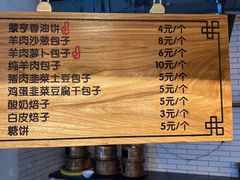 蒙亨香油饼 4元/个
羊肉沙葱包子 8元/个
羊肉萝卜包子 6元/个
纯羊肉包子 10元/个
猪肉韭菜土豆包子 5元/个
鸡蛋韭菜豆腐干包子 5元/个
酸奶焙子 5元/个
白皮焙子 3元/个
糖饼 5元/个